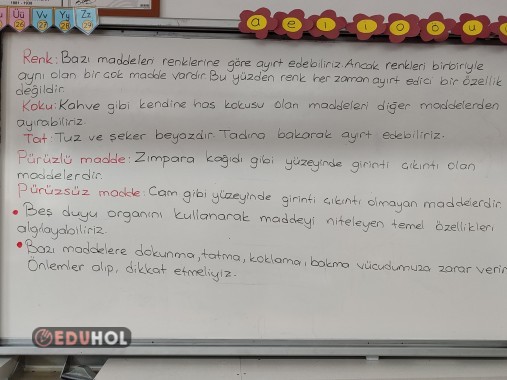 Üü Vv Yy Zz
26 27 28 29
a e ı i o ö u
Renk: Bazı maddeleri renklerine göre ayırt edebiliriz. Ancak renkleri birbiriyle
aynı olan bir çok madde vardır. Bu yüzden renk her zaman ayırt edici bir özellik
değildir.
Koku: Kahve gibi kendine has kokusu olan maddeleri diğer maddelerden
ayırabiliriz.
Tat: Tuz ve şeker beyazdır. Tadına bakarak ayırt edebiliriz.
Pürüzlü madde: Zımpara kağıdı gibi yüzeyinde girinti çıkıntı olan
maddelerdir.
Pürüzsüz madde: Cam gibi yüzeyinde girinti çıkıntı olmayan maddelerdir.
• Beş duyu organını kullanarak maddeyi niteleyen temel özellikleri
algılayabiliriz.
• Bazı maddelere dokunma, tatma, koklama, bakma vücudumuza zarar verir
Önlemler alıp, dikkat etmeliyiz.
EDUHOL